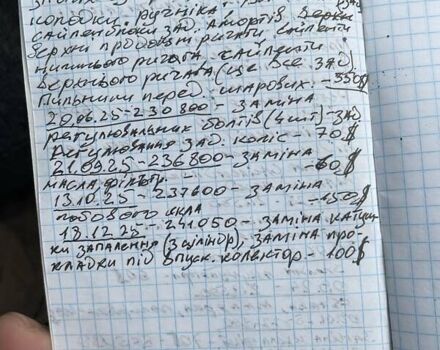 колодки, ручніка,
сайлентблоки зад. Амортів, Верхн
Верхні продовзні ричаги, сайленти
нищнього ричага, сайленти
верхнього ричага (це все зад)
Пильники перед. шарових. - 350$
20.06.25 - 230 800 - ЗАМІНА
регулювальних болтів (4 шт) - ЗАД
Регулювання ЗАД. коліс - 70$
21.09.25 - 236800 - ЗАМІНА
масла, фільтр. - 60$
13.10.25 - 237600 - ЗАМІНА
лобового скла - 150$
18.12.25 - 241050 - ЗАМІНА катуш
ки запалення (3 циліндр), ЗАМІНА про
кладки під впуск. колектор - 100$